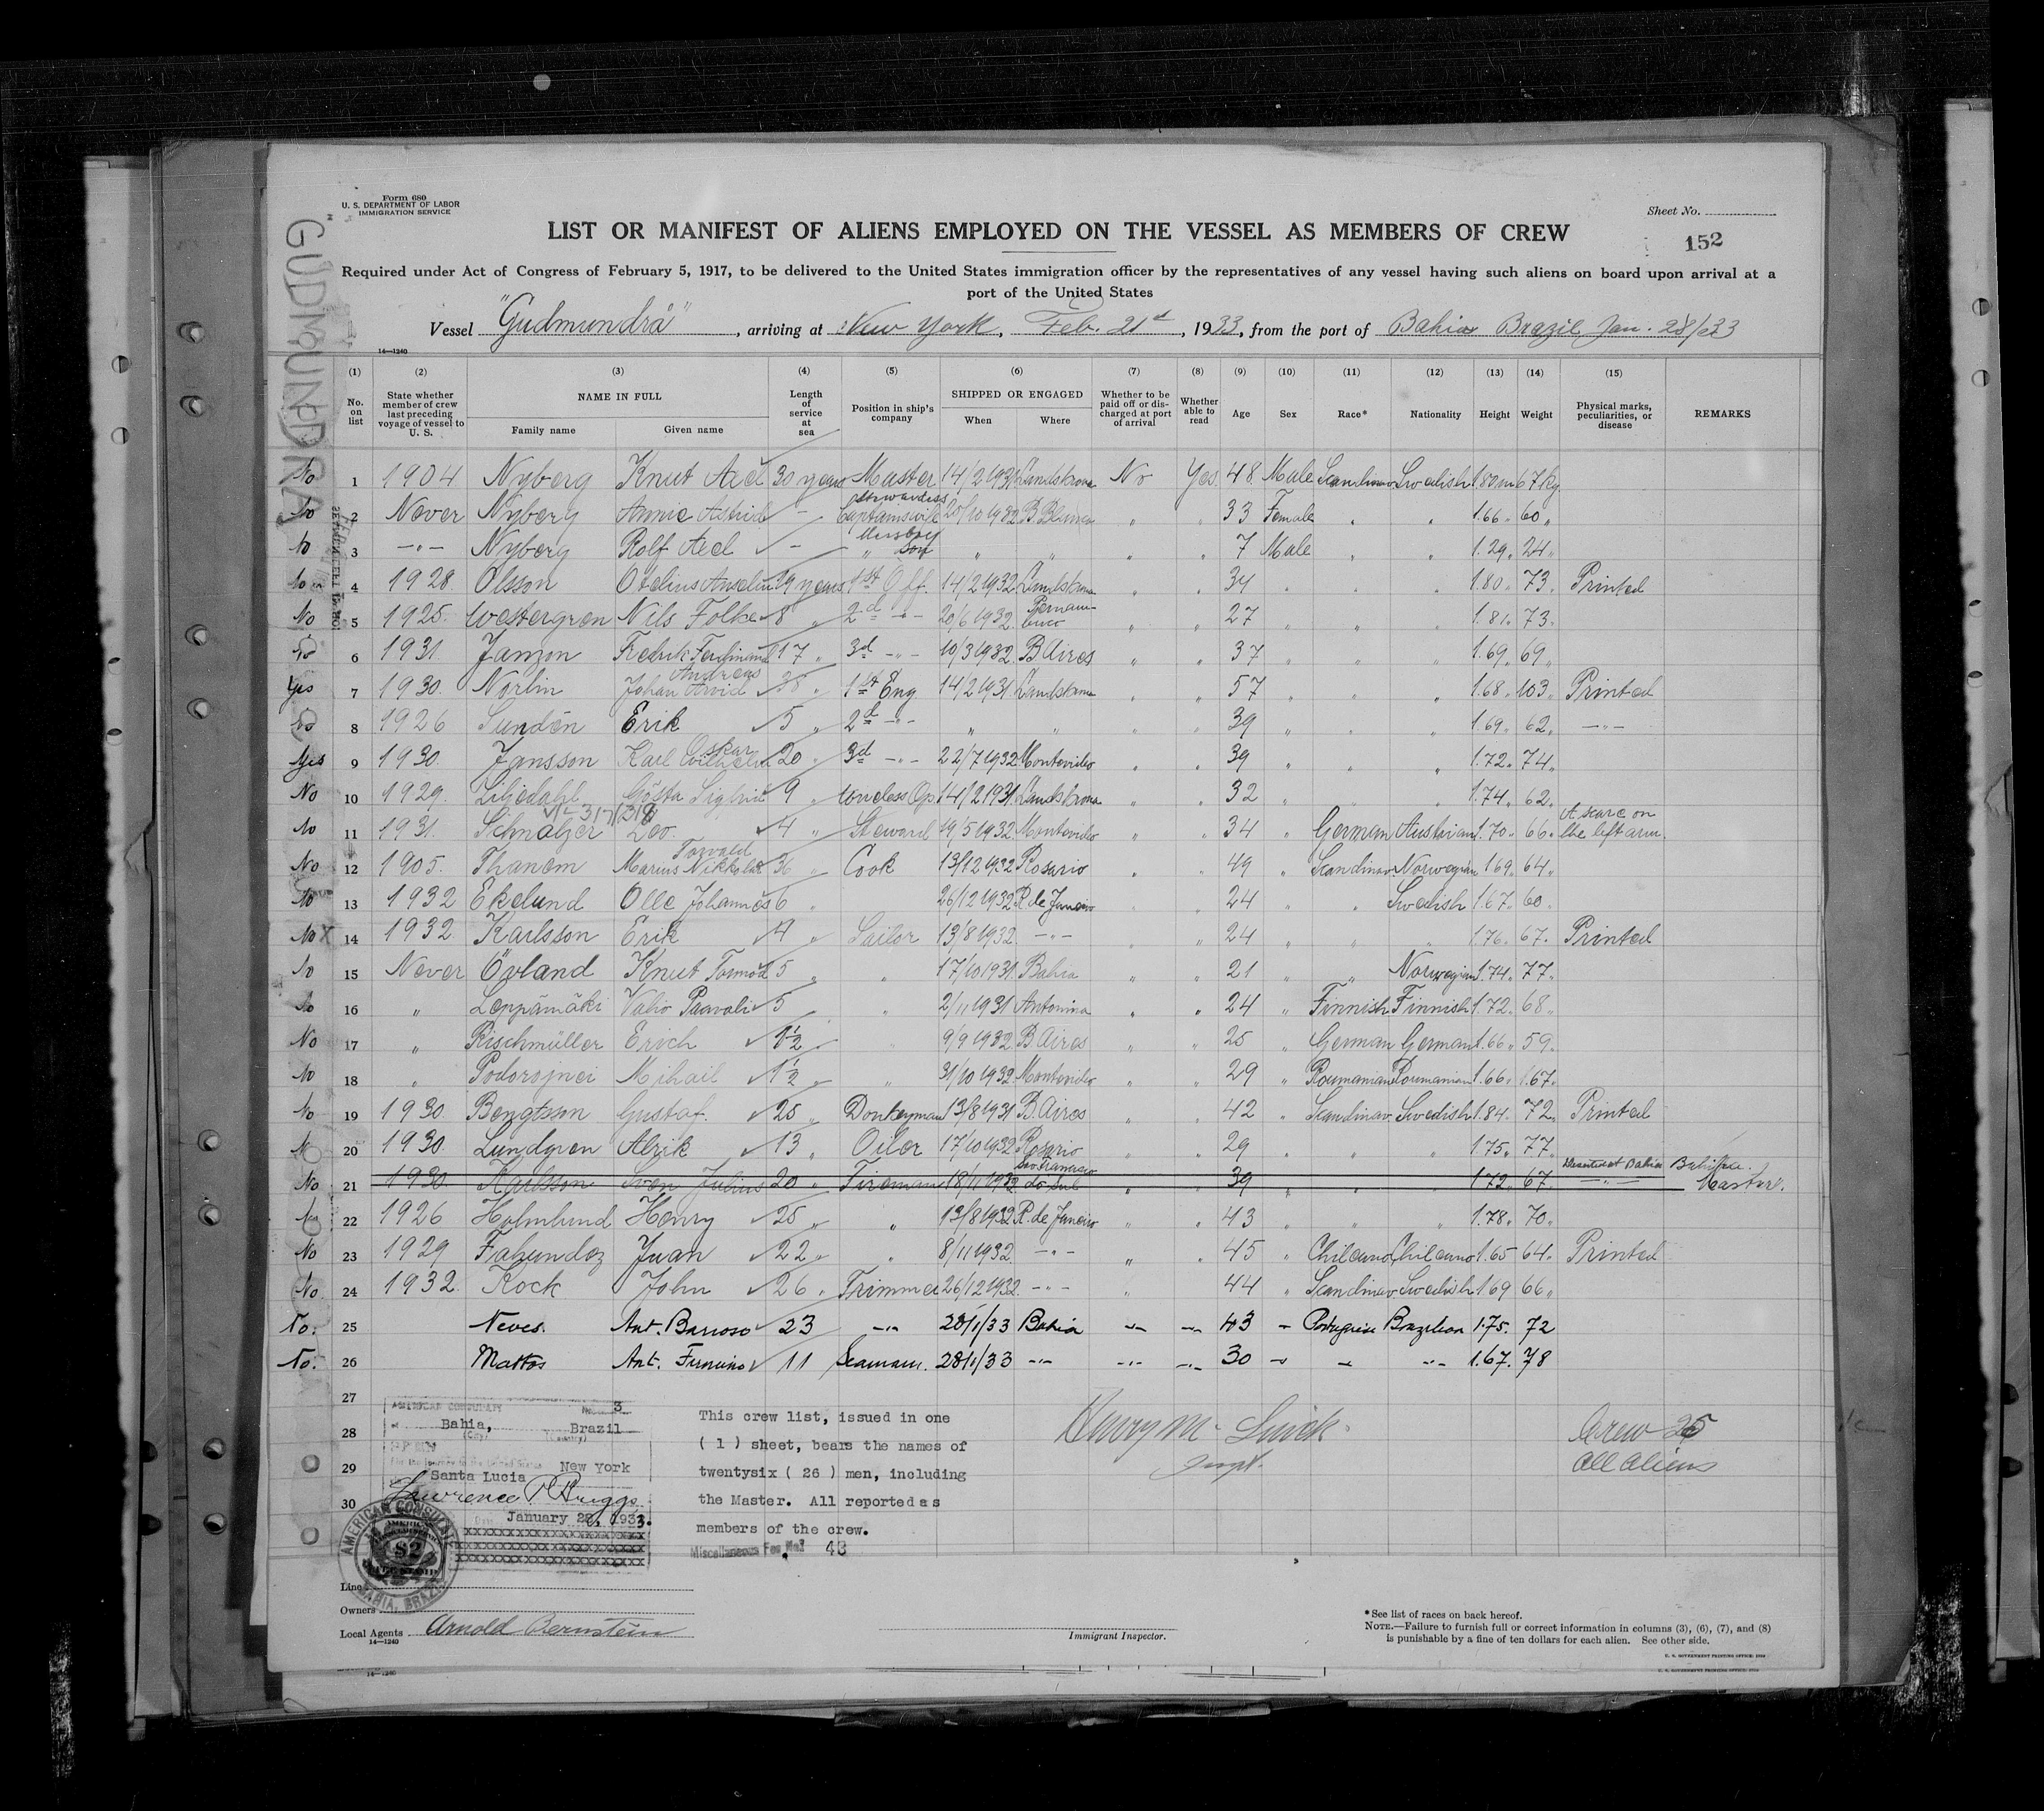 Form 680
U. S. DEPARTMENT OF LABOR
IMMIGRATION SERVICE
Sheet No.
LIST OR MANIFEST OF ALIENS EMPLOYED ON THE VESSEL AS MEMBERS OF CREW
152
Required under Act of Congress of February 5, 1917, to be delivered to the United States immigration officer by the representatives of any vessel having such aliens on board upon arrival at a
port of the United States
Vessel "Gudmundrå", arriving at New York, Feb. 21st, 1933, from the port of Bahia Brazil Jan. 28/33
14—1240
"GUDMUNDRA"
(1) (2) (3) (4) (5) (6) (7) (8) (9) (10) (11) (12) (13) (14) (15)
No. on list
State whether member of crew last preceding voyage of vessel to U. S.
NAME IN FULL
Family name
Given name
Length of service at sea
Position in ship's company
SHIPPED OR ENGAGED
When
Where
Whether to be paid off or discharged at port of arrival
Whether able to read
Age
Sex
Race*
Nationality
Height
Weight
Physical marks, peculiarities, or disease
REMARKS
No 1 1904 Nyberg Knut Axel 30 years Master 14/2 1931 Landskrona No Yes 48 Male Scandinav Swedish 1.80 m 67 kg
No 2 Never Nyberg Annie Astrid - Stewardess Captains wife 20/10 1932 B. Blanca " " 33 Female " " 1.66 " 60 "
No 3 —"— Nyberg Rolf Axel - Messboy " Son " " " " 7 Male " " 1.29 " 24 "
No 4 1928 Olsson Otelius Anselm 19 years 1st Off. 14/2 1932 Landskrona " " 34 " " " 1.80 " 73 " Printed
No 5 1925 Westergren Nils Folke 8 " 2d —"— 20/6 1932 Pernambuco " " 27 " " " 1.81 " 73 "
No 6 1931 Janzon Fredrik Ferdinand 17 " 3d —"— 10/3 1932 B Aires " " 37 " " " 1.69 " 69 "
Yes 7 1930 Norlin Johan Arvid Andreas 38 " 1st Eng 14/2 1931 Landskrona " " 57 " " " 1.68 " 103 " Printed
No 8 1926 Sundén Erik 5 " 2d —"— " " " " 39 " " " 1.69 " 62 " —"—
Yes 9 1930 Jansson Karl Oskar Vilhelm 20 " 3d —"— 22/7 1932 Montevideo " " 39 " " " 1.72 " 74 "
No 10 1929 Liljedahl Gösta Sigfrid 9 " Wireless Op. 14/2 1931 Landskrona " " 32 " " " 1.74 " 62 "
No 11 1931 Schnalzer Leo 4 " Steward 19/5 1932 Montevideo " " 34 " German Austrian 1.70 " 66 " A scare on the left arm.
No 12 1905 Thanem Marius Torvald 36 " Cook 13/12 1932 Rosario " " 49 " Scandinav Norwegian 1.69 " 64 "
No 13 1932 Ekelund Olle Johannes 6 " 26/12 1932 R. de Janeiro " " 24 " " Swedish 1.67 " 60 "
No X 14 1932 Karlsson Erik 4 " Sailor 13/8 1932 —"— " " 24 " " " 1.76 " 67 " Printed
No 15 Never Övland Knut Tormod 5 " " 17/10 1931 Bahia " " 21 " " Norwegian 1.74 " 77 "
No 16 " Leppämäki Valio Paavali 5 " " 2/11 1931 Antonina " " 24 " Finnish Finnish 1.72 " 68 "
No 17 " Rischmüller Erich 1½ " " 9/9 1932 B Aires " " 25 " German German 1.66 " 59 "
No 18 " Podorojnei Mihail 1½ " " 31/10 1932 Montevideo " " 29 " Roumanian Roumanian 1.66 " 67 "
No 19 1930 Bengtsson Gustaf 25 " Donkeyman 13/8 1931 B. Aires " " 42 " Scandinav Swedish 1.84 " 72 " Printed
No 20 1930 Lundgren Alrik 13 " Oiler 17/10 1932 Rosario " " 29 " " " 1.75 " 77 "
No 21 1930 Karlsson Sven Julius 20 " Fireman 18/11 1932 Sao Francisco do Sul " " 39 " " " 1.72 " 67 " —"— Deserted at Bahia Master.
22 1926 Holmlund Henry 25 " " 13/8 1932 R. de Janeiro " " 43 " " " 1.78 " 70 "
No 23 1929 Fahundez Juan 22 " " 8/11 1932 —"— " " 45 " Chileano Chileano 1.65 64 " Printed
No 24 1932 Kock John 26 " Trimmer 26/12 1932 —"— " 44 " Scandinav Swedish 1.69 66 "
No. 25 Neves. Ant. Barroso 23 —"— 28/1/33 Bahia —"— —"— 43 — Portuguese Brazilian 1.75. 72
No. 26 Mattos Ant. Firmino 11 Seaman. 28/1/33 —"— —"— —"— 30 — — —"— 1.67. 78
27
28
29
30
AMERICAN CONSULATE No. 3
at Bahia, Brazil
(City) (Country)
New York
Santa Lucia
Lawrence P. Briggs
January 28, 1933.
AMERICAN CONSULATE
BAHIA, BRAZIL
$2
This crew list, issued in one
( 1 ) sheet, bears the names of
twentysix ( 26 ) men, including
the Master. All reported as
members of the crew.
Miscellaneous Fee No. 43
Crew 25
All aliens
Line
Owners
Local Agents Arnold Bernstein
14—1240
Immigrant Inspector.
* See list of races on back hereof.
NOTE.—Failure to furnish full or correct information in columns (3), (6), (7), and (8)
is punishable by a fine of ten dollars for each alien. See other side.
U. S. GOVERNMENT PRINTING OFFICE